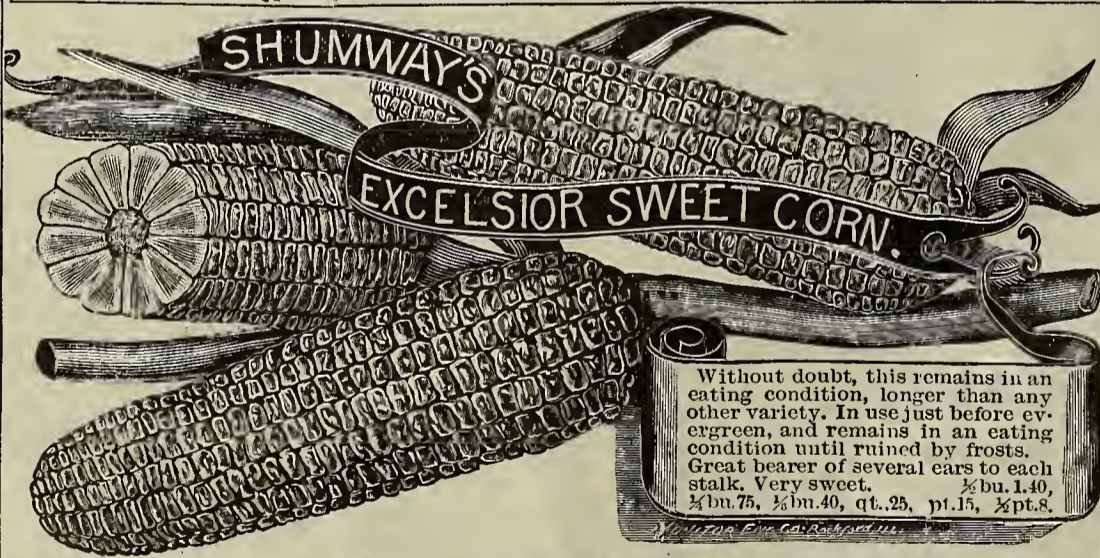 SHUMWAY'S
EXCELSIOR SWEET CORN.
Without doubt, this remains in an
eating condition, longer than any
other variety. In use just before ev-
ergreen, and remains in an eating
condition until ruined by frosts.
Great bearer of several ears to each
stalk. Very sweet. ½bu. 1.40,
¼bu.75, ⅛bu.40, qt..25, pt.15, ½pt.8.
MONITOR ENG. CO. Rockford, Ill.